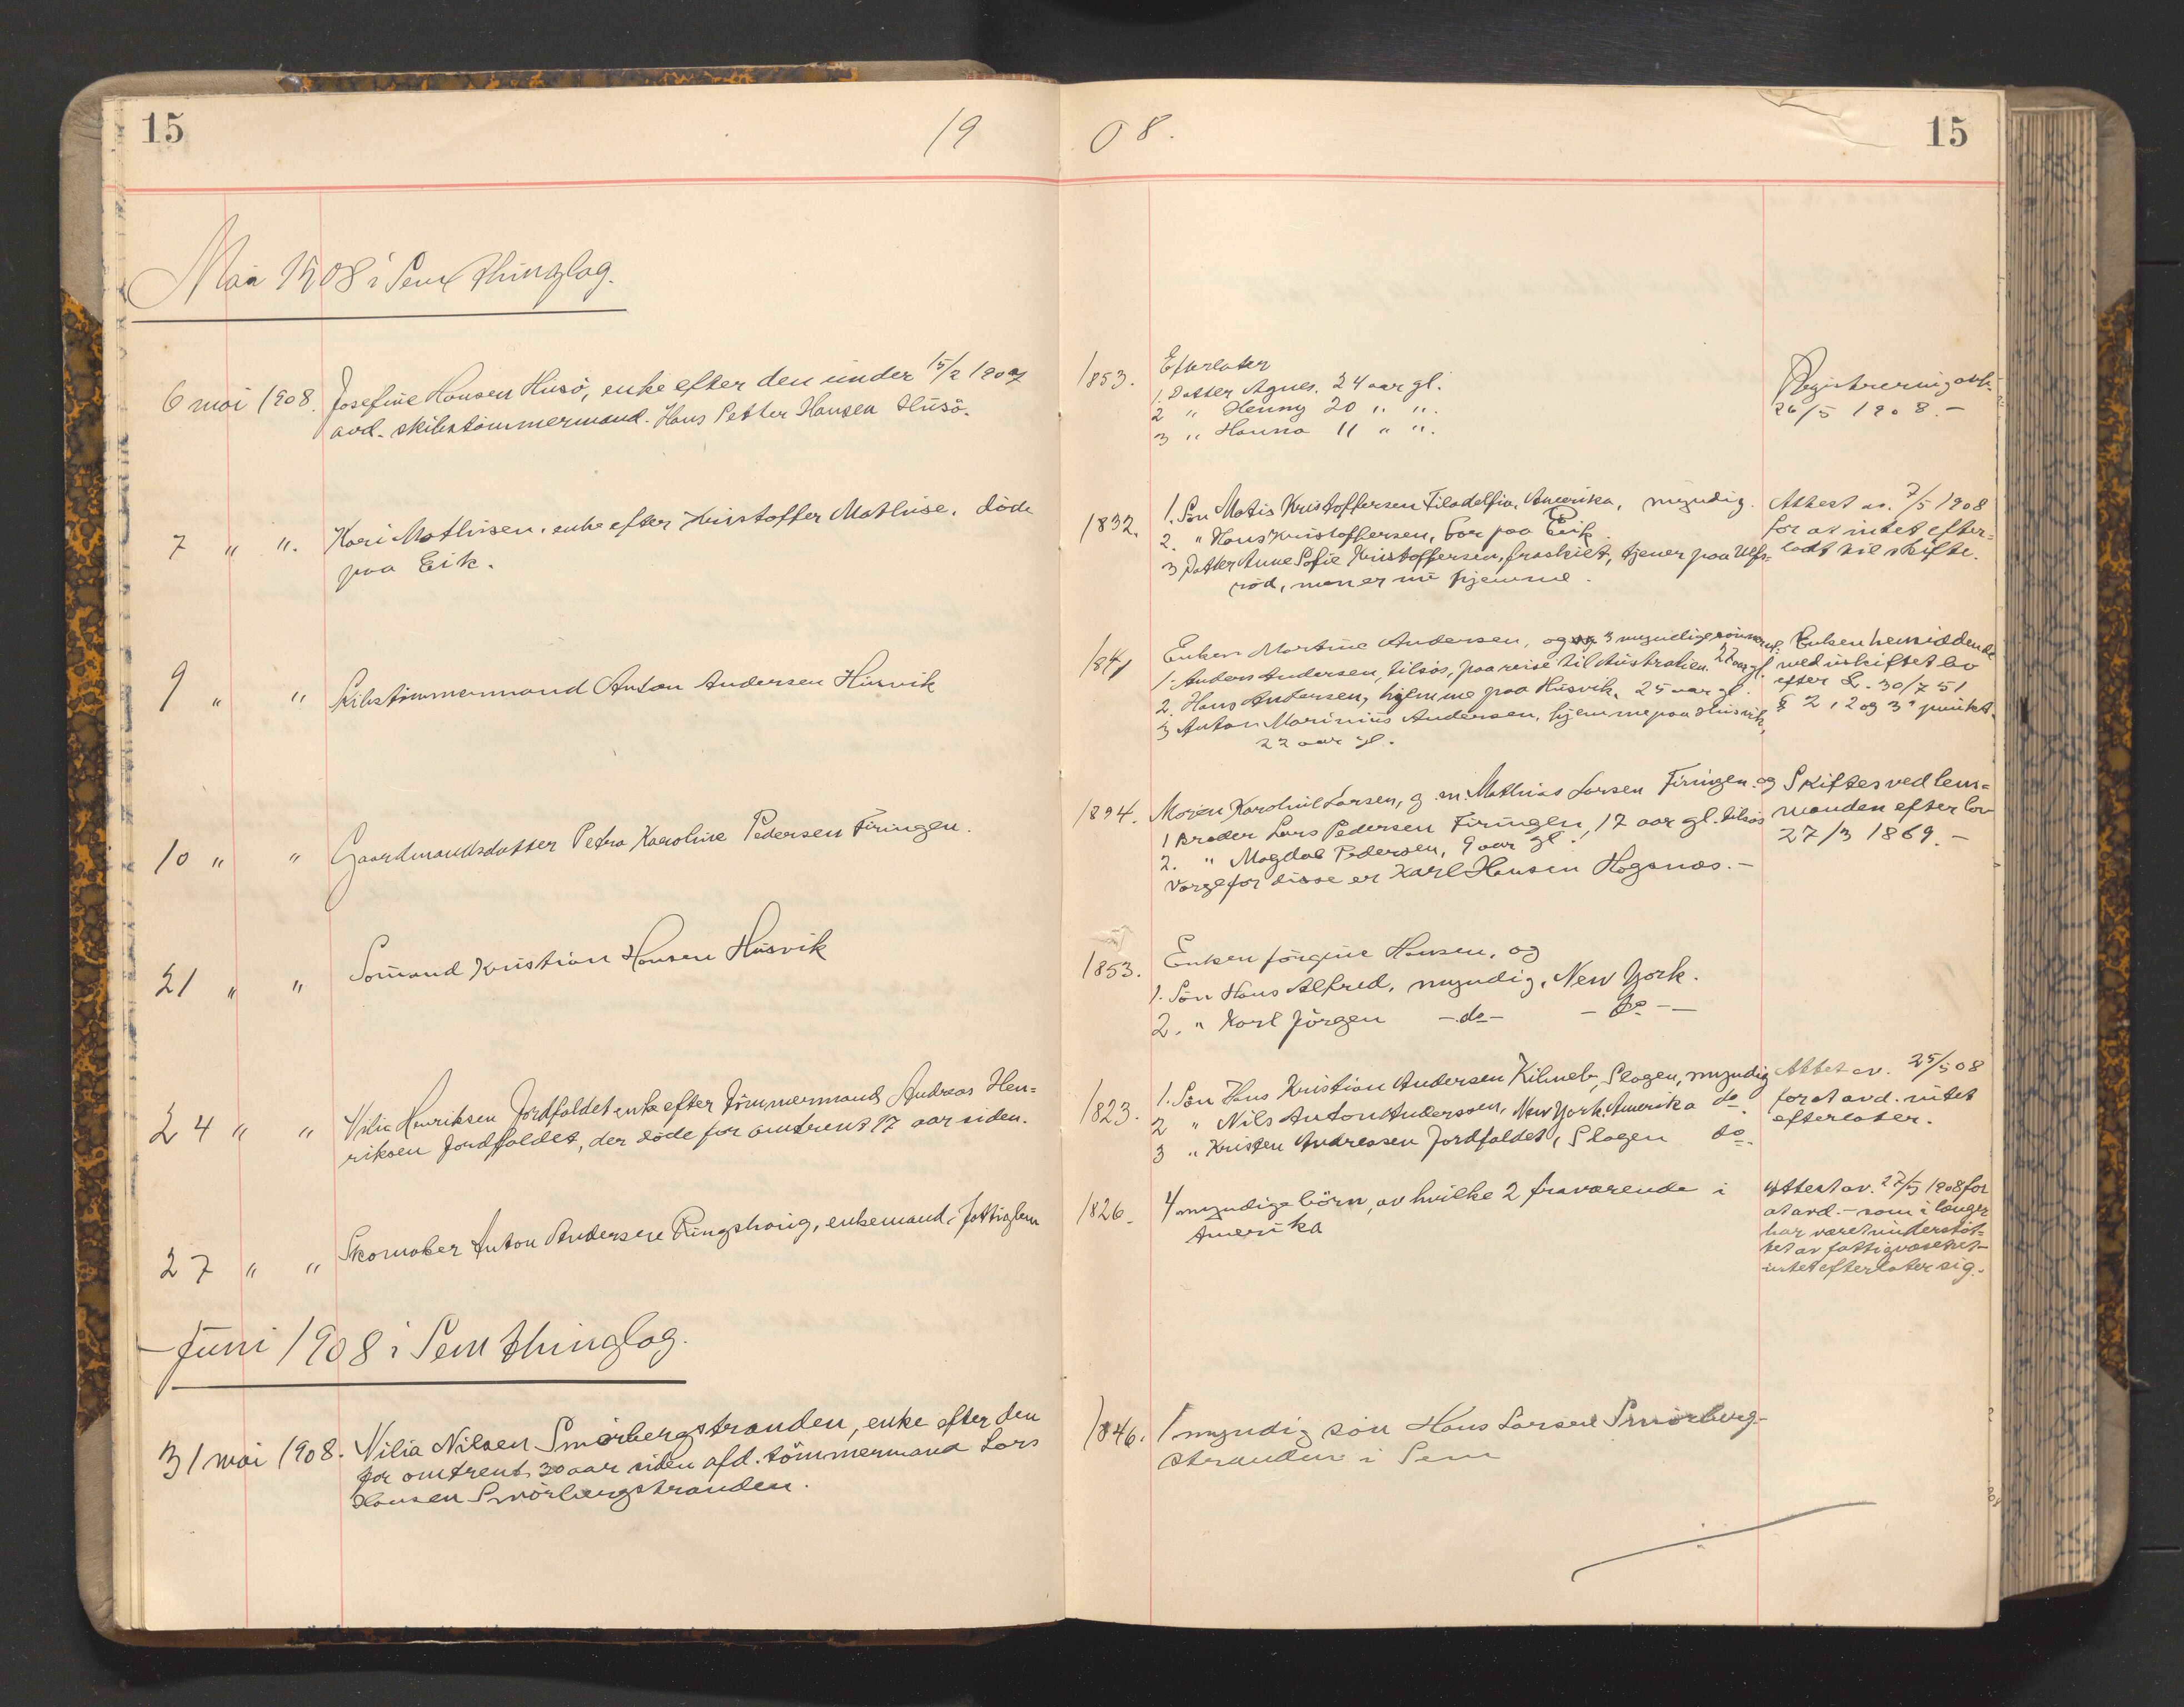 15
19 08.
15
Mai 1908 i Sem thinglag.
6 mai 1908. Josefine Hansen Husö, enke efter den under 15/2 1907
avd. skibstömmermand Hans Petter Hansen Husö.
1853. Efterlater
1. Datter Agnes. 24 aar gl.
2 " Henny 20 " ".
3 " Hanna 11 " ".
Registrering avh.
26/5 1908.-
7 " ". Kari Mathisen, enke efter Kristoffer Mathise, döde
paa Eik.
1832. 1. Sön Matis Kristoffersen Filadelfia, Amerika, myndig.
2. " Hans Kristoffersen, bor paa Eik.
3 Datter Anne Sofie Kristoffersen, fraskilt, tjener paa Ulfs-
röd, men er nu hjemme.
Attest av. 7/5 1908
for at intet efter=
ladt til skifte.
9 " " Skibstömmermand Anton Andersen Husvik
1841 Enken Martine Andersen, og 3 myndige sönner:
1. Anders Andersen, tilsös, paa reise til Australien. 32 aar gl.
2. Hans Andersen, hjemme paa Husvik, 25 aar gl.
3 Anton Marinius Andersen, hjemme paa Husvik,
22 aar gl.
Enken hensiddende
med uskiftet bo
efter L. 30/7 51
§ 2, 2 og 3' punkt.
10 " " Gaardmandsdatter Petra Karoline Pedersen Firingen.
1894. Moren Karoline Larsen, g. m. Mathias Larsen Firingen. og
1 Broder Lars Pedersen Firingen, 17 aar gl. tilsös
2. " Magdal Pedersen, 9 aar gl.
Værge for disse er Karl Hansen Hogsnæs.-
Skiftes ved lens=
manden efter lov
27/3 1869.-
21 " " Sömand Kristian Hansen Husvik
1853. Enken Jörgine Hansen, og
1. Sön Hans Alfred, myndig, New York.
2. " Karl Jörgen -do- -do-
24 " " Vilia Henriksen Jordfaldet enke efter Tömmermand Andreas Hen=
riksen Jordfaldet, der döde for omtrent 17 aar siden.
1823. 1. Sön Hans Kristian Andersen Kilneb, Slagen, myndig
2 " Nils Anton Anderssen, New York. Amerika do.
3 " Kristen Andreasen Jordfaldet, Slagen do.
Attest av. 25/5 08
for at avd. intet
efterlater.
27 " " Skomaker Anton Andersen Ringshaug, enkemand, fattiglem
1826. 4 myndige börn, av hvilke 2 fraværende i
Amerika
Attest av. 27/5 1908 for
at avd. - som i længer
har været understöt=
tet av fattigvæsenet -
intet efterlater sig.
Juni 1908 i Sem thinglag.
31 mai 1908. Vilia Nilsen Smörbergstranden, enke efter den
for omtrent 30 aar siden afd. tömmermand Lars
Hansen Smörbergstranden.
1846. 1 myndig sön Hans Larsen Smörberg-
stranden i Sem